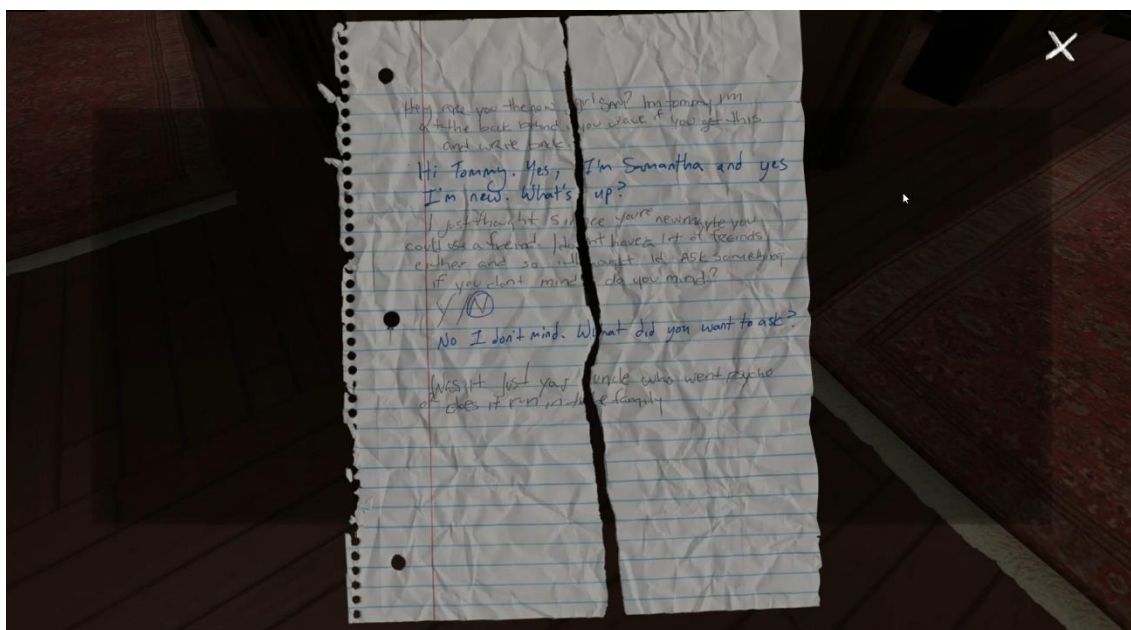 Hey are you the new girl Sam? Im tommy im
at the back behind you wave if you get this
and write back
Hi Tommy. Yes, I'm Samantha and yes
I'm new. What's up?
I just thought since youre new maybe you
could use a freind. I dont have a lot of freinds
either and so i thought Id ask something
if you dont mind. do you mind?
Y/N
No I don't mind. What did you want to ask?
Was it just your uncle who went psycho
or does it run in the family